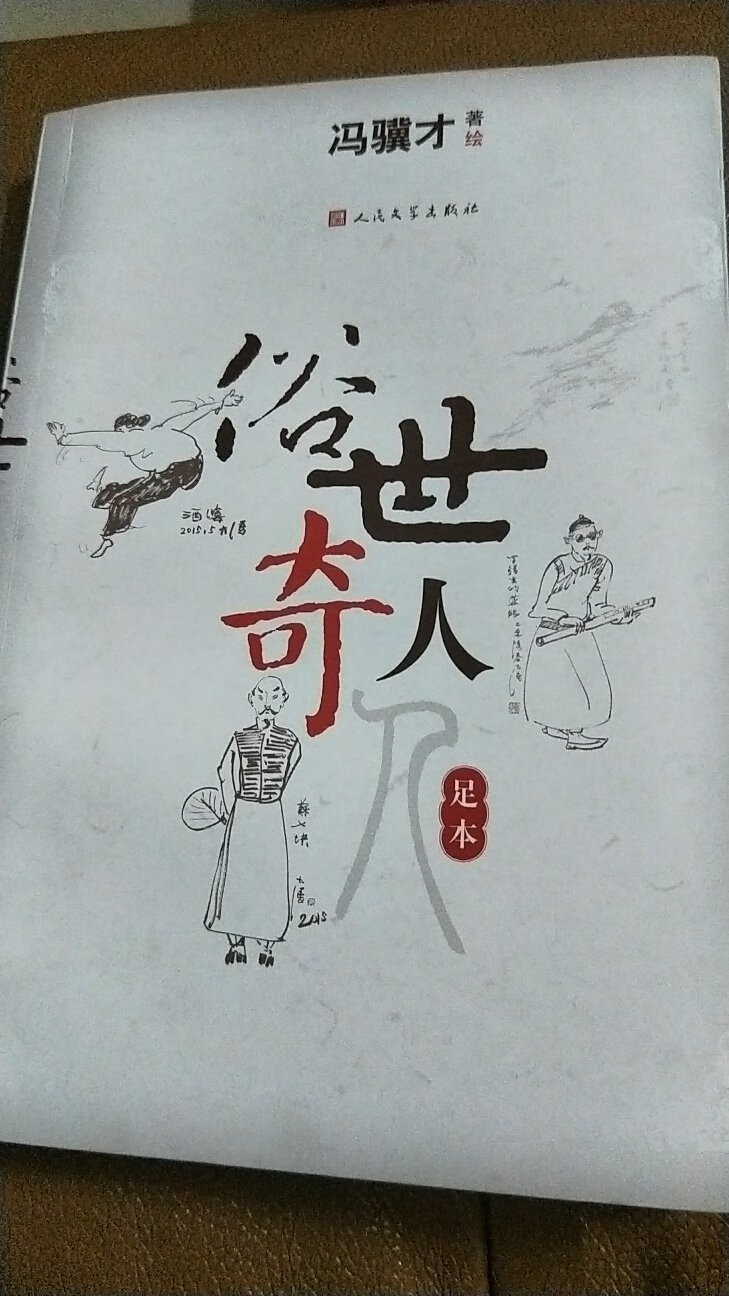 冯骥才 著绘
人民文学出版社
俗世奇人
足本
酒婆
2015.5 大冯
蘇七块
大冯
2015